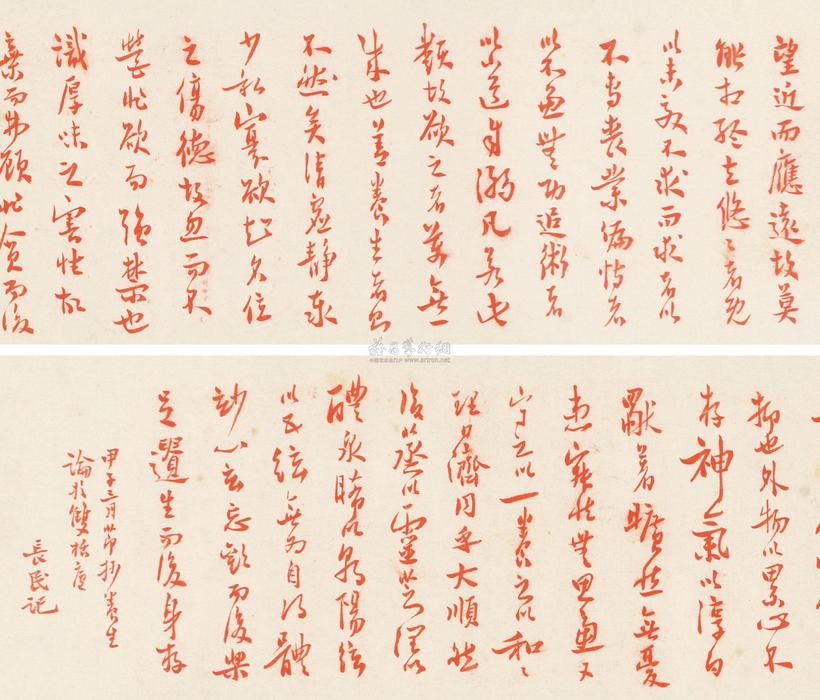 望近而應遠故莫
能相終夫悠々者既
以未效不求而求者以
不專喪業偏恃者
以不兼無功追術者
以小道自溺凡若此
類故欲之者萬無一
成也善養生者則
不然矣清虛靜泰
少私寡欲知名位
之傷德故忽而不
營非欲而強禁也
識厚味之害性故
棄而弗顧非貪而後
抑也外物以累心不
存神氣以淳白
獸著曠然無憂
患寂然無思慮又
守之以一養之以和々
理日濟同乎大順然
後蒸以靈芝潤以
醴泉晞以朝陽綏
以五弦無為自得體
妙心玄忘歡而後樂
足遺生而後身存
甲子三月抄養生
論於雙栝廬
長民記
雅昌藝術網
www.artron.net